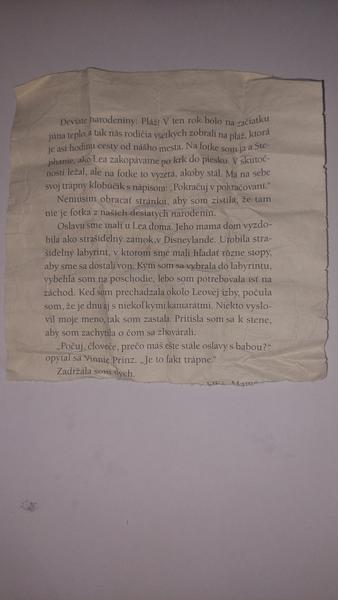 Deviate narodeniny: Pláž! V ten rok bolo na začiatku
júna teplo a tak nás rodičia všetkých zobrali na pláž, ktorá
je asi hodinu cesty od nášho mesta. Na fotke som ja a Ste-
phanie, ako Lea zakopávame po krk do piesku. V skutoč-
nosti ležal, ale na fotke to vyzerá, akoby stál. Má na sebe
svoj trápny klobúčik s nápisom: „Pokračuj v pokračovaní.“
Nemusím obracať stránku, aby som zistila, že tam
nie je fotka z našich desiatych narodenín.
Oslavu sme mali u Lea doma. Jeho mama dom vyzdo-
bila ako strašidelný zámok v Disneylande. Urobila stra-
šidelný labyrint, v ktorom sme mali hľadať rôzne stopy,
aby sme sa dostali von. Kým som sa vybrala do labyrintu,
vybehla som na poschodie, lebo som potrebovala ísť na
záchod. Keď som prechádzala okolo Leovej izby, počula
som, že je dnu aj s niekoľkými kamarátmi. Niekto vyslo-
vil moje meno, tak som zastala. Pritisla som sa k stene,
aby som zachytila o čom sa zhovárali.
„Počuj, človeče, prečo máš ešte stále oslavy s babou?“
opýtal sa Vinnie Prinz. „Je to fakt trápne.“
Zadržala som dych.